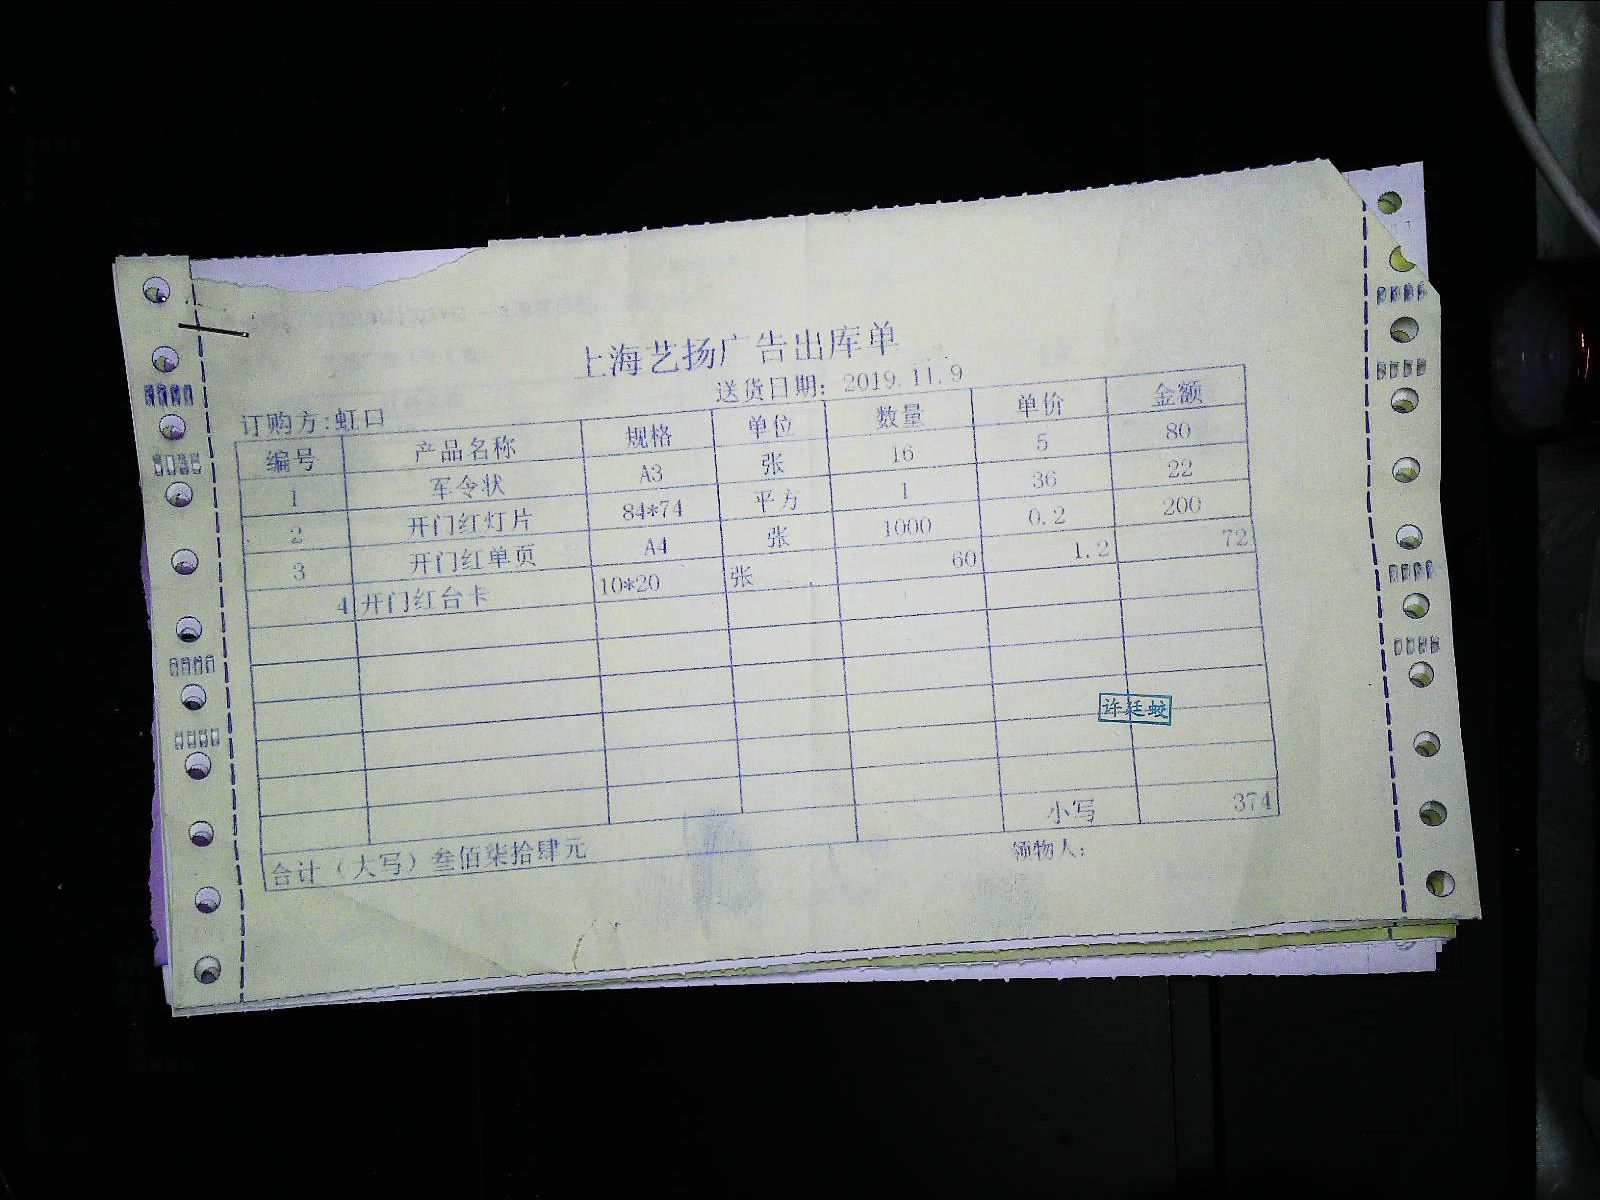 上海艺扬广告出库单
送货日期: 2019.11.9
订购方:虹口
编号 产品名称 规格 单位 数量 单价 金额
1 军令状 A3 张 16 5 80
2 开门红灯片 84*74 平方 1 36 22
3 开门红单页 A4 张 1000 0.2 200
4 开门红台卡 10*20 张 60 1.2 72
许廷蛟
小写 374
合计（大写）叁佰柒拾肆元
领物人: